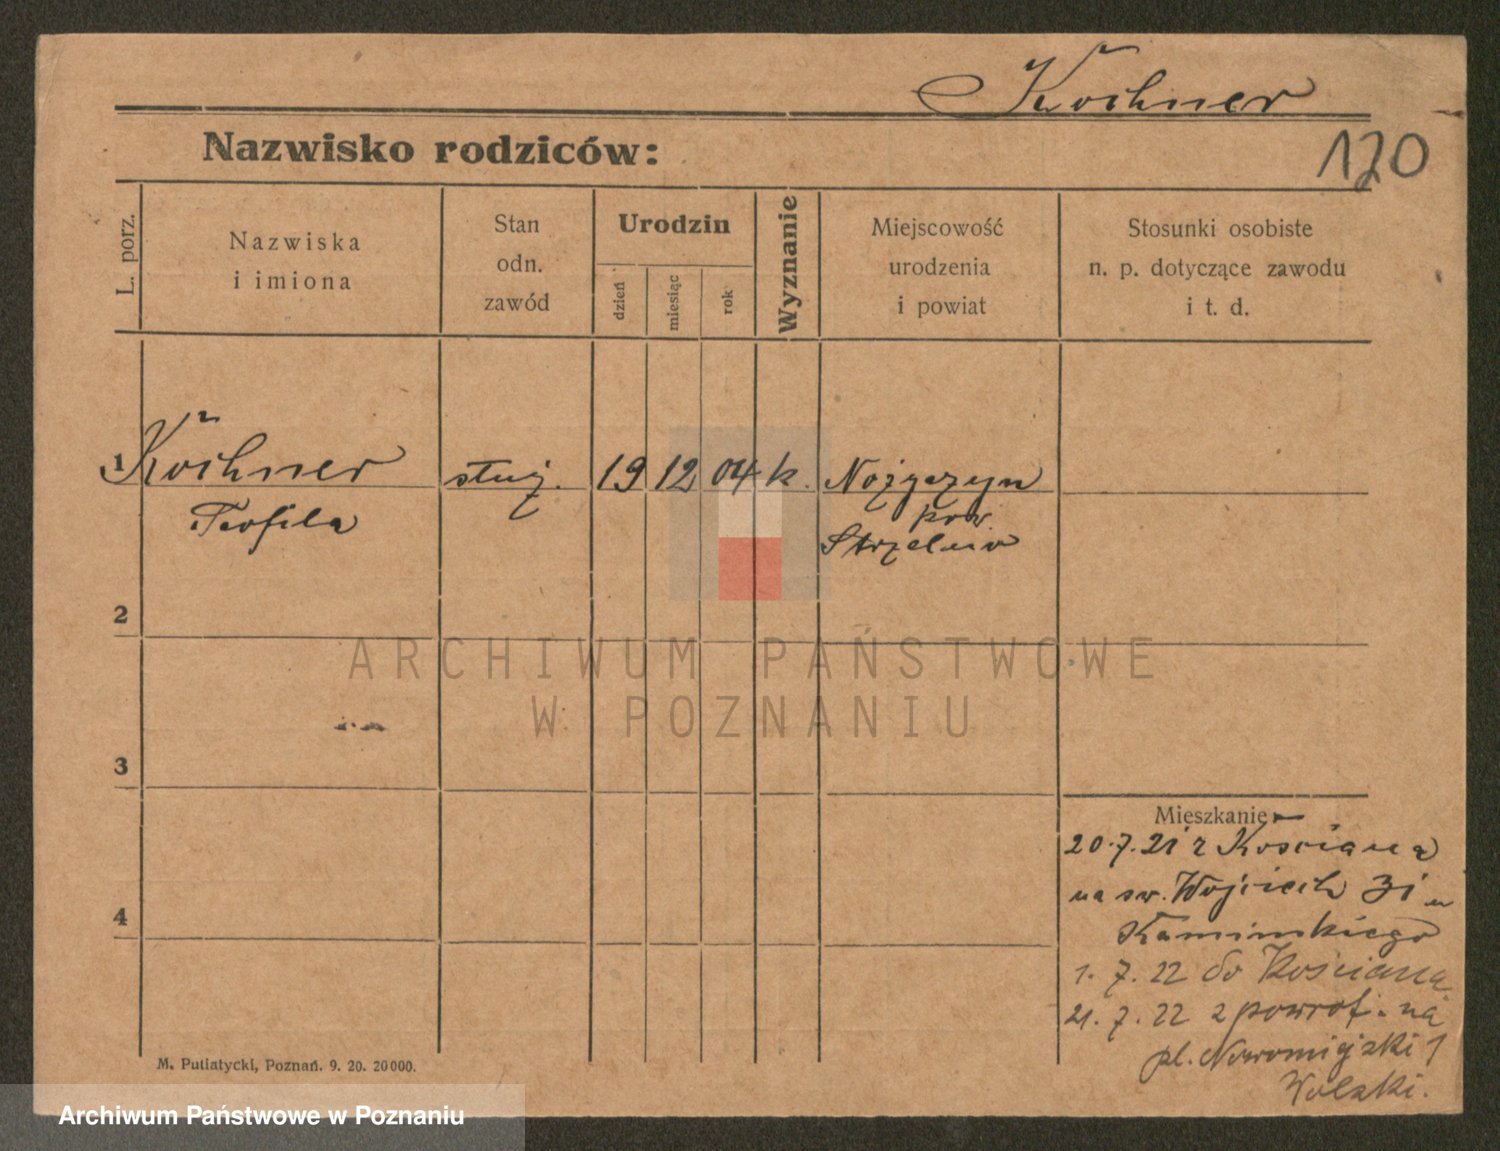 Köchner
Nazwisko rodziców:
120
L. porz.
Nazwiska
i imiona
Stan
odn.
zawód
Urodzin
dzień
miesiąc
rok
Wyznanie
Miejscowość
urodzenia
i powiat
Stosunki osobiste
n. p. dotyczące zawodu
i t. d.
1 Köchner służ. 19 12 04 k. Nożyczyn
Teofila pow.
Strzelno
2
3
4
ARCHIWUM PAŃSTWOWE
W POZNANIU
Mieszkanie
20.7.21 z Kościana
na św. Wojciech 31 u
Kamińskiego
1. 7. 22 do Kościana
21. 7. 22 z powrot. na
pl. Nowomiejski 1
Wolski.
M. Putiatycki, Poznań. 9. 20. 20000.
Archiwum Państwowe w Poznaniu